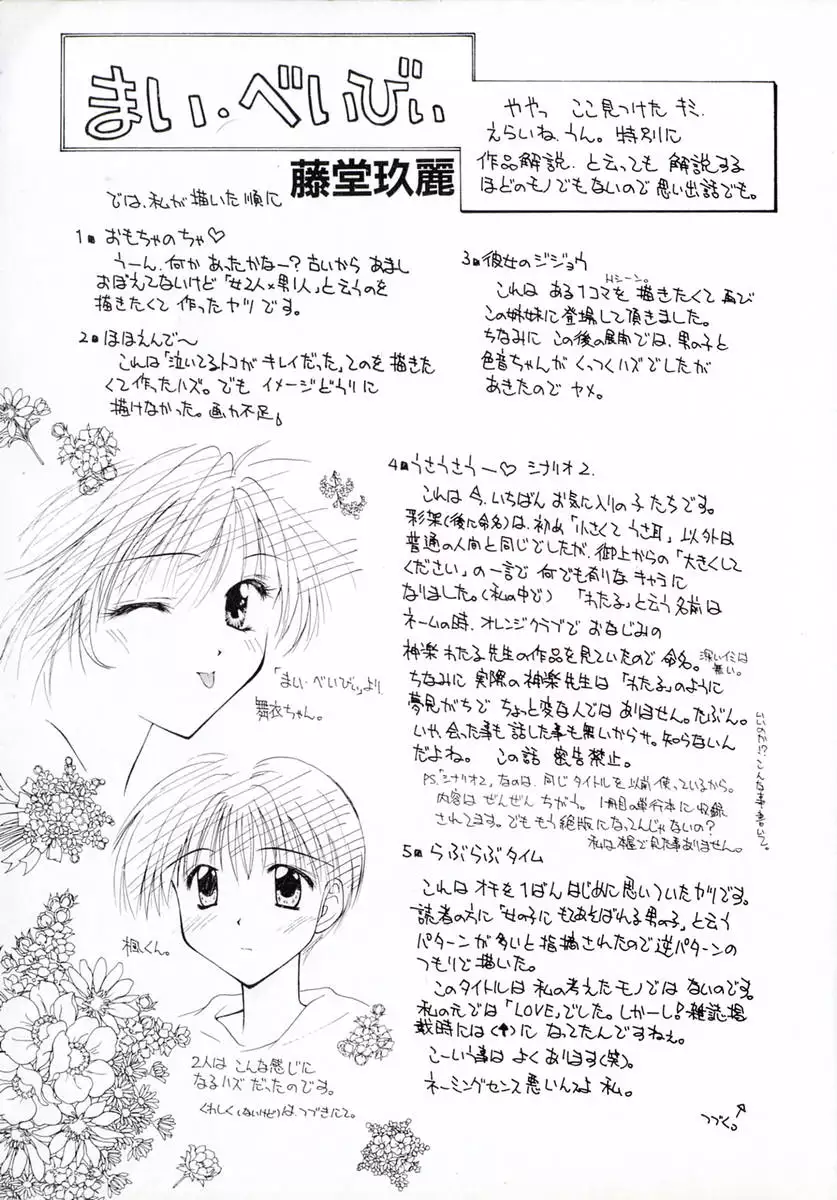 まい・べいびぃ
藤堂玖麗
ややっ ここ見つけた キミ、
えらいね、うん。特別に
作品解説、と云っても 解説する
ほどのモノでもないので 思い出話でも。
では、私が描いた順に
1 おもちゃのちゃ♡
うーん、何か あったかなー？古いから あまし
おぼえてないけど「女2人×男1人」と云うのを
描きたくて 作ったヤツ です。
2 ほほえんで〜
これは「泣いてるトコが キレイだった」てのを 描きた
くて作ったハズ。でも イメージどうりに
描けなかった。画力不足!
3 彼女のジジョウ
Hシーン。
これは ある1コマを 描きたくて 再び
この姉妹に登場して頂きました。
ちなみに この後の展開では、男の子と
色音ちゃんが くっつくハズでしたが
あきたので ヤメ。
4 うさうさうー♡ シナリオ2.
これは 今、いちばん お気に入りの子たちです。
彩架(後に命名)は、初め「小さくて うさ耳」以外は
普通の人向と同じでしたが、御上からの「大きくして
ください」の一言で 何でも有りな キャラに
なりました。(私の中で) 「わたる」と云う名前は
ネームの時、オレンジクラブで おなじみの
神楽 わたる先生の作品を見ていたので 命名。
深いイミは
無い。
ちなみに 実際の神楽先生は 「わたる」のように
夢見がちで ちょっと変な人では ありません。たぶん。
いや、会った事も 話した事も無いからサ。知らないん
だよね。 この話 密告禁止。
いいのか!? こんな事書いて。
PS.「シナリオ2」なのは、同じタイトルを以前 使っているから。
内容は ぜんぜん ちがう。1冊目の単行本に収録
されてます。でも もう絶版になってんじゃないの?
私は本屋で見た事ありません。
5 らぶらぶタイム
これは オチを 1ばん はじめに思いついたヤツです。
読者の方に「女の子に もてあそばれる男の子」と云う
パターンが 多いと 指摘されたので 逆パターンの
つもりで描いた。
このタイトルは 私の考えた モノでは ないのです。
私の元では「LOVE」でした。しかーし!雑誌掲
載時には(↑)に なってたんですねぇ。
こーいう事は よく あります(笑)。
ネーミングセンス悪いんでよ 私。
つづく。
「まい・べいびぃ」より、
舞衣ちゃん。
楓くん。
2人は こんな感じに
なるハズ だったのです。
くわしく(ないけど)は、つづきにて。